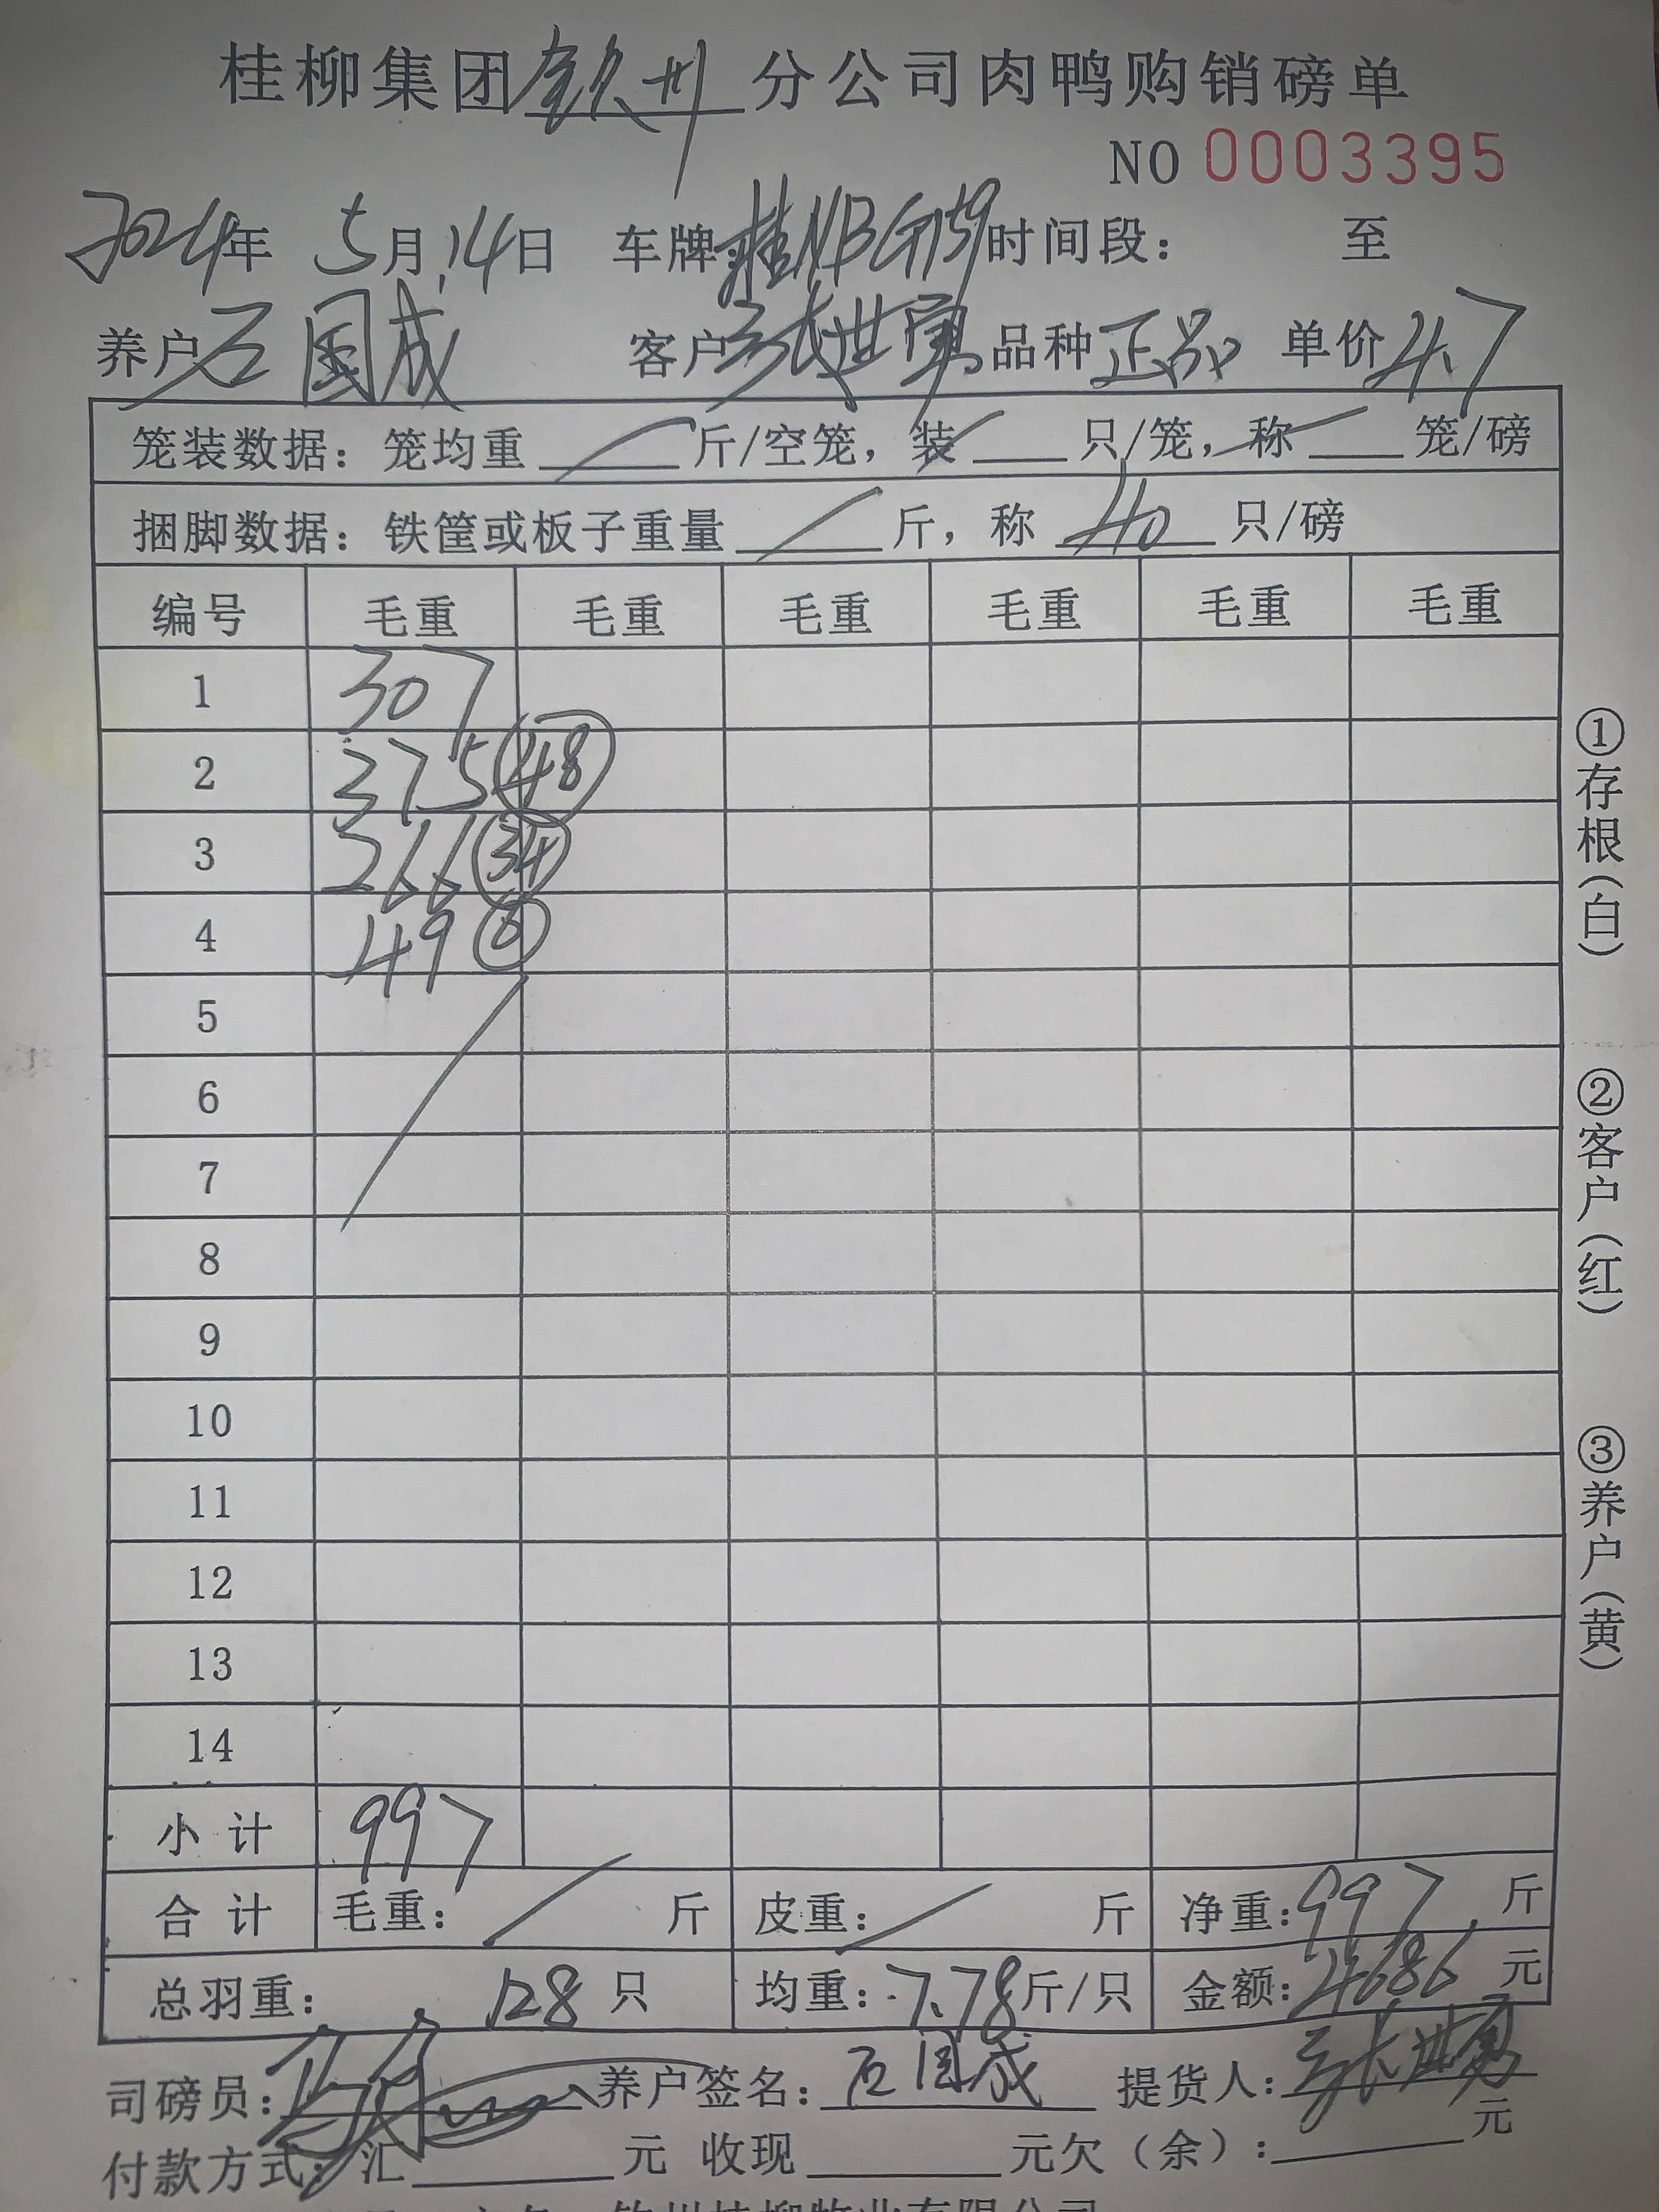 桂柳集团钦州分公司肉鸭购销磅单
NO 0003395
2024年 5月14日 车牌:桂NBG159 时间段: 至
养户 石国成 客户 张世勇 品种 正品 单价 4.7
笼装数据: 笼均重 / 斤/空笼, 装 / 只/笼, 称 / 笼/磅
捆脚数据: 铁筐或板子重量 / 斤, 称 40 只/磅
编号 毛重 毛重 毛重 毛重 毛重 毛重
1 307
2 375 48
3 266 34
4 49 6
5
6
7
8
9
10
11
12
13
14
小计 997
合计 毛重: / 斤 皮重: / 斤 净重: 997 斤
总羽重: 128 只 均重: 7.78 斤/只 金额: 4686 元
司磅员: 养户签名: 石国成 提货人: 张世勇
付款方式: 汇 元 收现 元欠(余): 元
钦州桂柳牧业有限公司
①存根(白)
②客户(红)
③养户(黄)